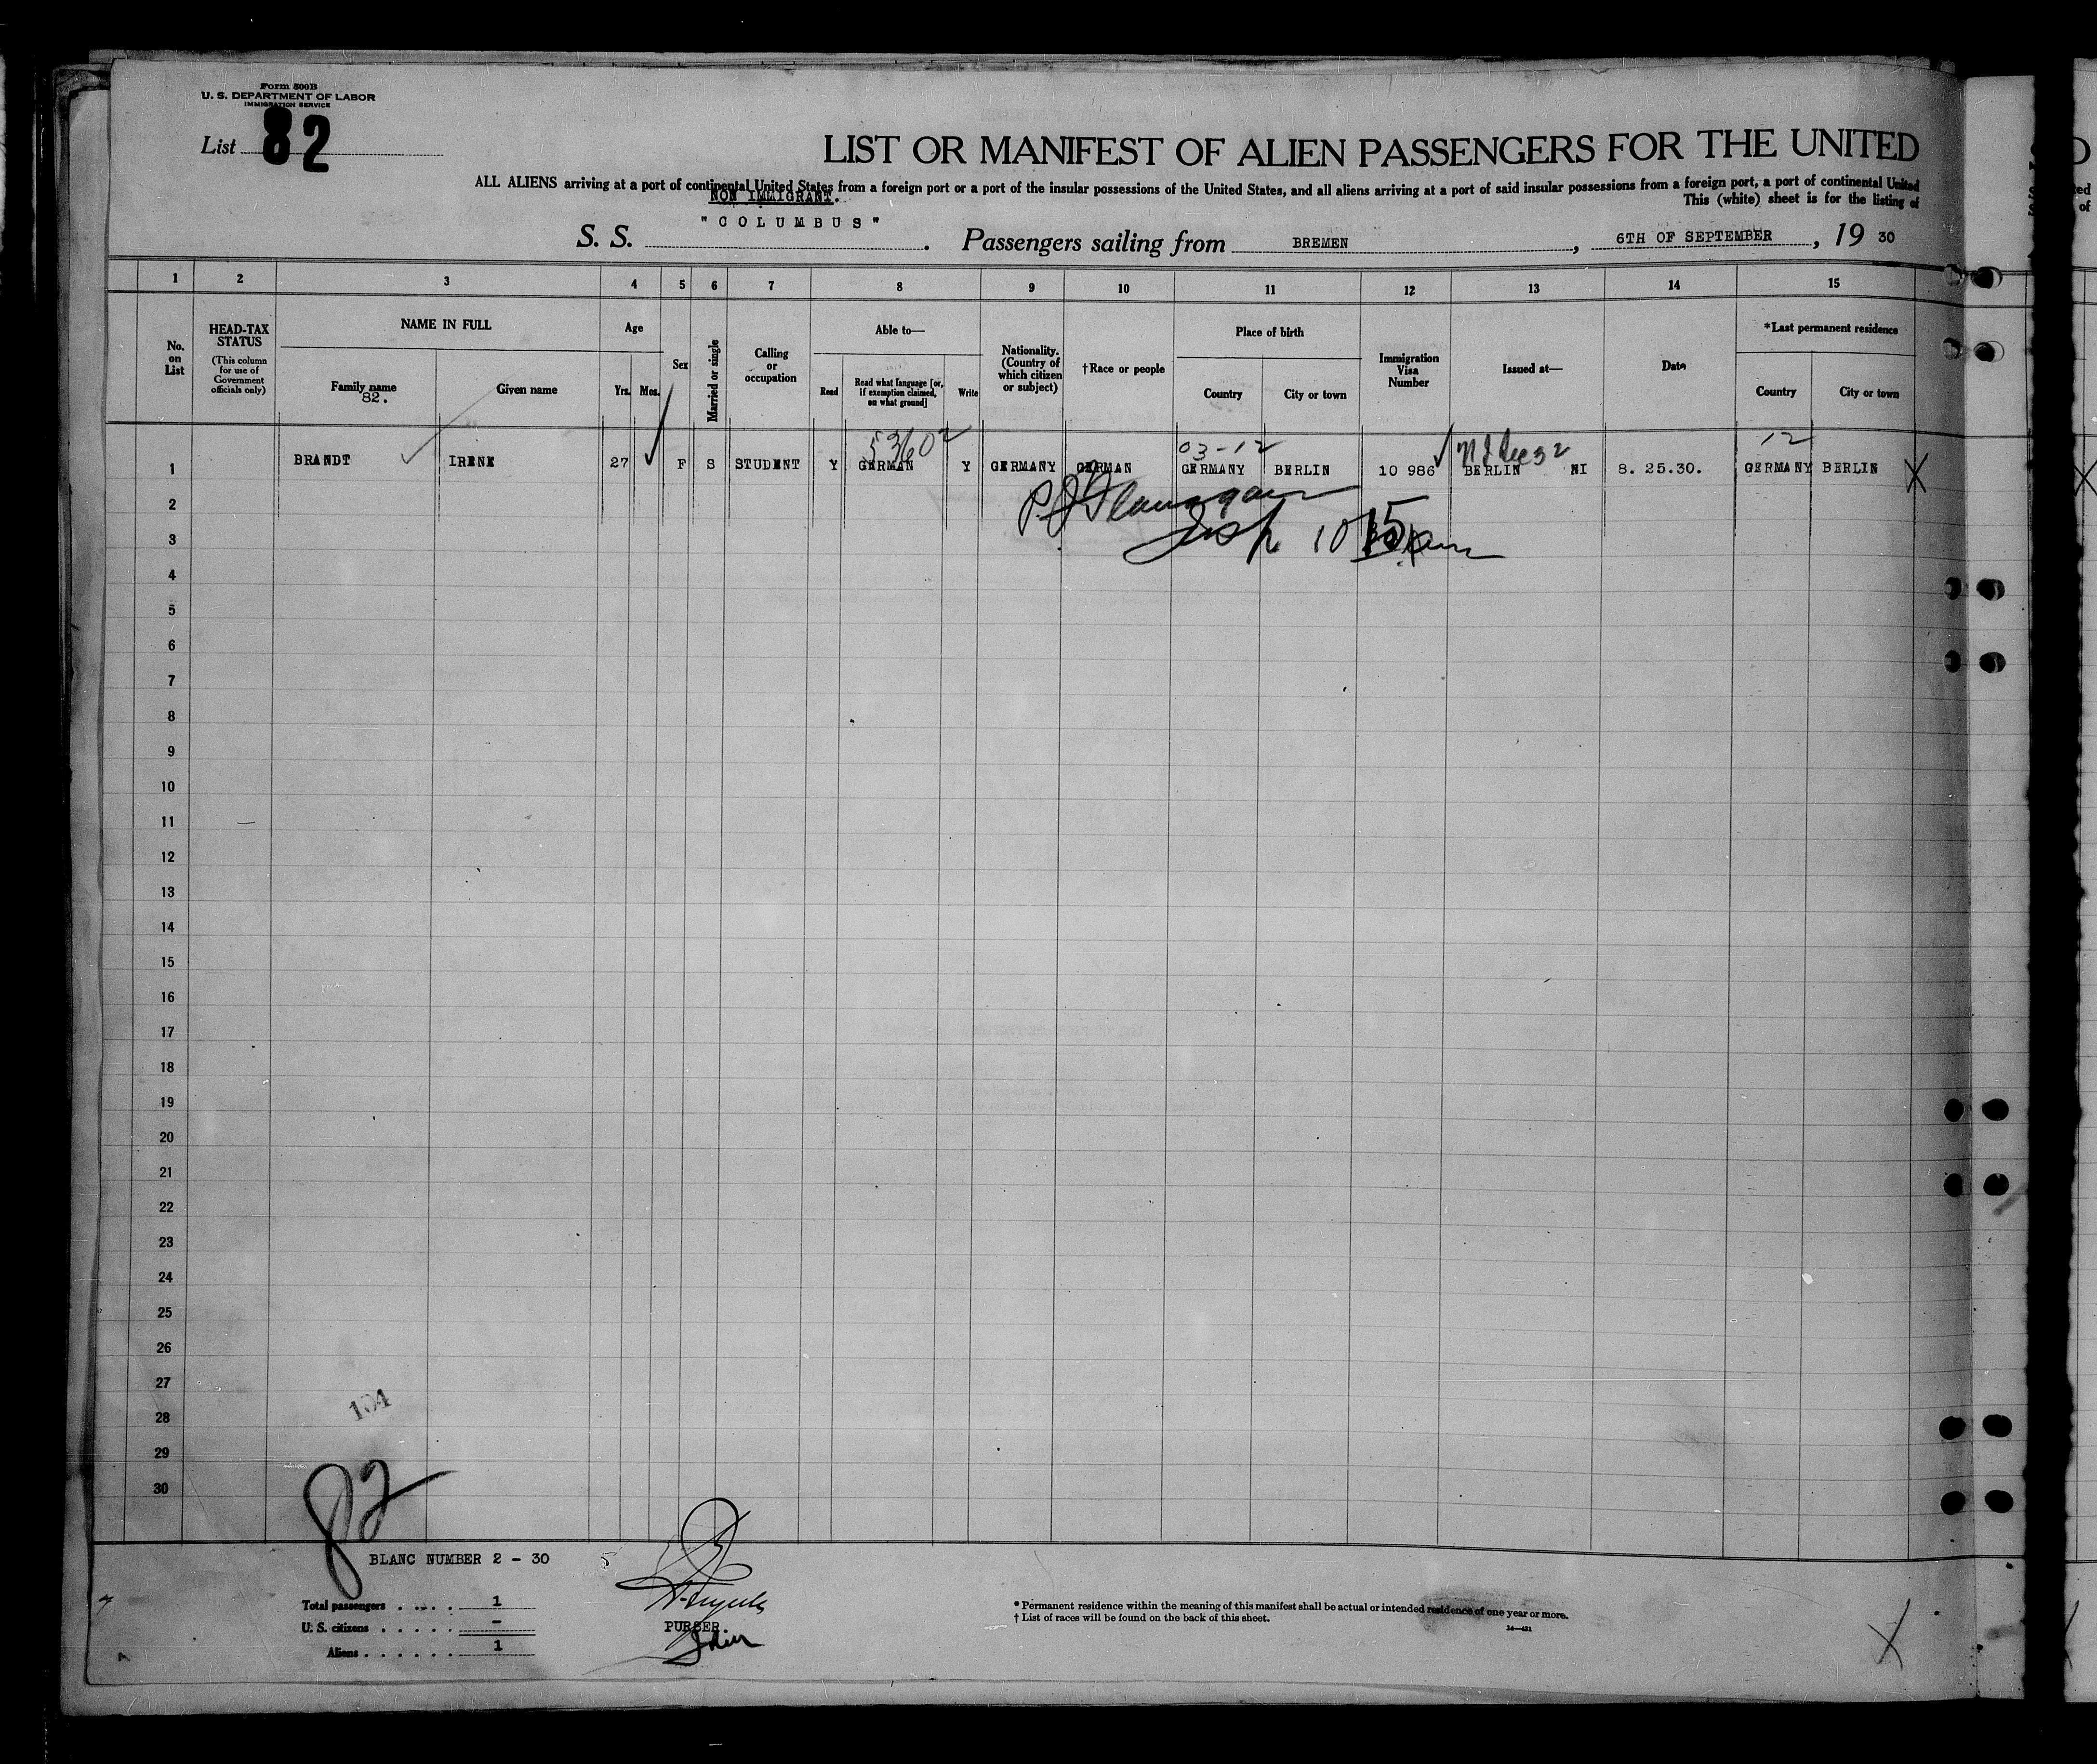 Form 500B
U. S. DEPARTMENT OF LABOR
IMMIGRATION SERVICE
List 82
LIST OR MANIFEST OF ALIEN PASSENGERS FOR THE UNITED
ALL ALIENS arriving at a port of continental United States from a foreign port or a port of the insular possessions of the United States, and all aliens arriving at a port of said insular possessions from a foreign port, a port of continental United
NON IMMIGRANT.
This (white) sheet is for the listing of
S. S. "COLUMBUS". Passengers sailing from BREMEN, 6TH OF SEPTEMBER, 19 30
1 2 3 4 5 6 7 8 9 10 11 12 13 14 15
No. on List
HEAD-TAX STATUS
(This column for use of Government officials only)
NAME IN FULL
Family name
82.
Given name
Age
Yrs. Mos.
Sex
Married or single
Calling or occupation
Able to—
Read
Read what language [or, if exemption claimed, on what ground]
Write
Nationality. (Country of which citizen or subject)
†Race or people
Place of birth
Country
City or town
Immigration Visa Number
Issued at—
Date
*Last permanent residence
Country
City or town
53602 03-12 12
1 BRANDT IRENE 27 F S STUDENT Y GERMAN Y GERMANY GERMAN GERMANY BERLIN 10 986 BERLIN NI 8. 25.30. GERMANY BERLIN X
2
3
4
5
6
7
8
9
10
11
12
13
14
15
16
17
18
19
20
21
22
23
24
25
26
27
104
28
29
30
82
BLANC NUMBER 2 - 30
Total passengers . . . . . 1
U. S. citizens . . . . . -
Aliens . . . . . . 1
PURSER
* Permanent residence within the meaning of this manifest shall be actual or intended residence of one year or more.
† List of races will be found on the back of this sheet.
X